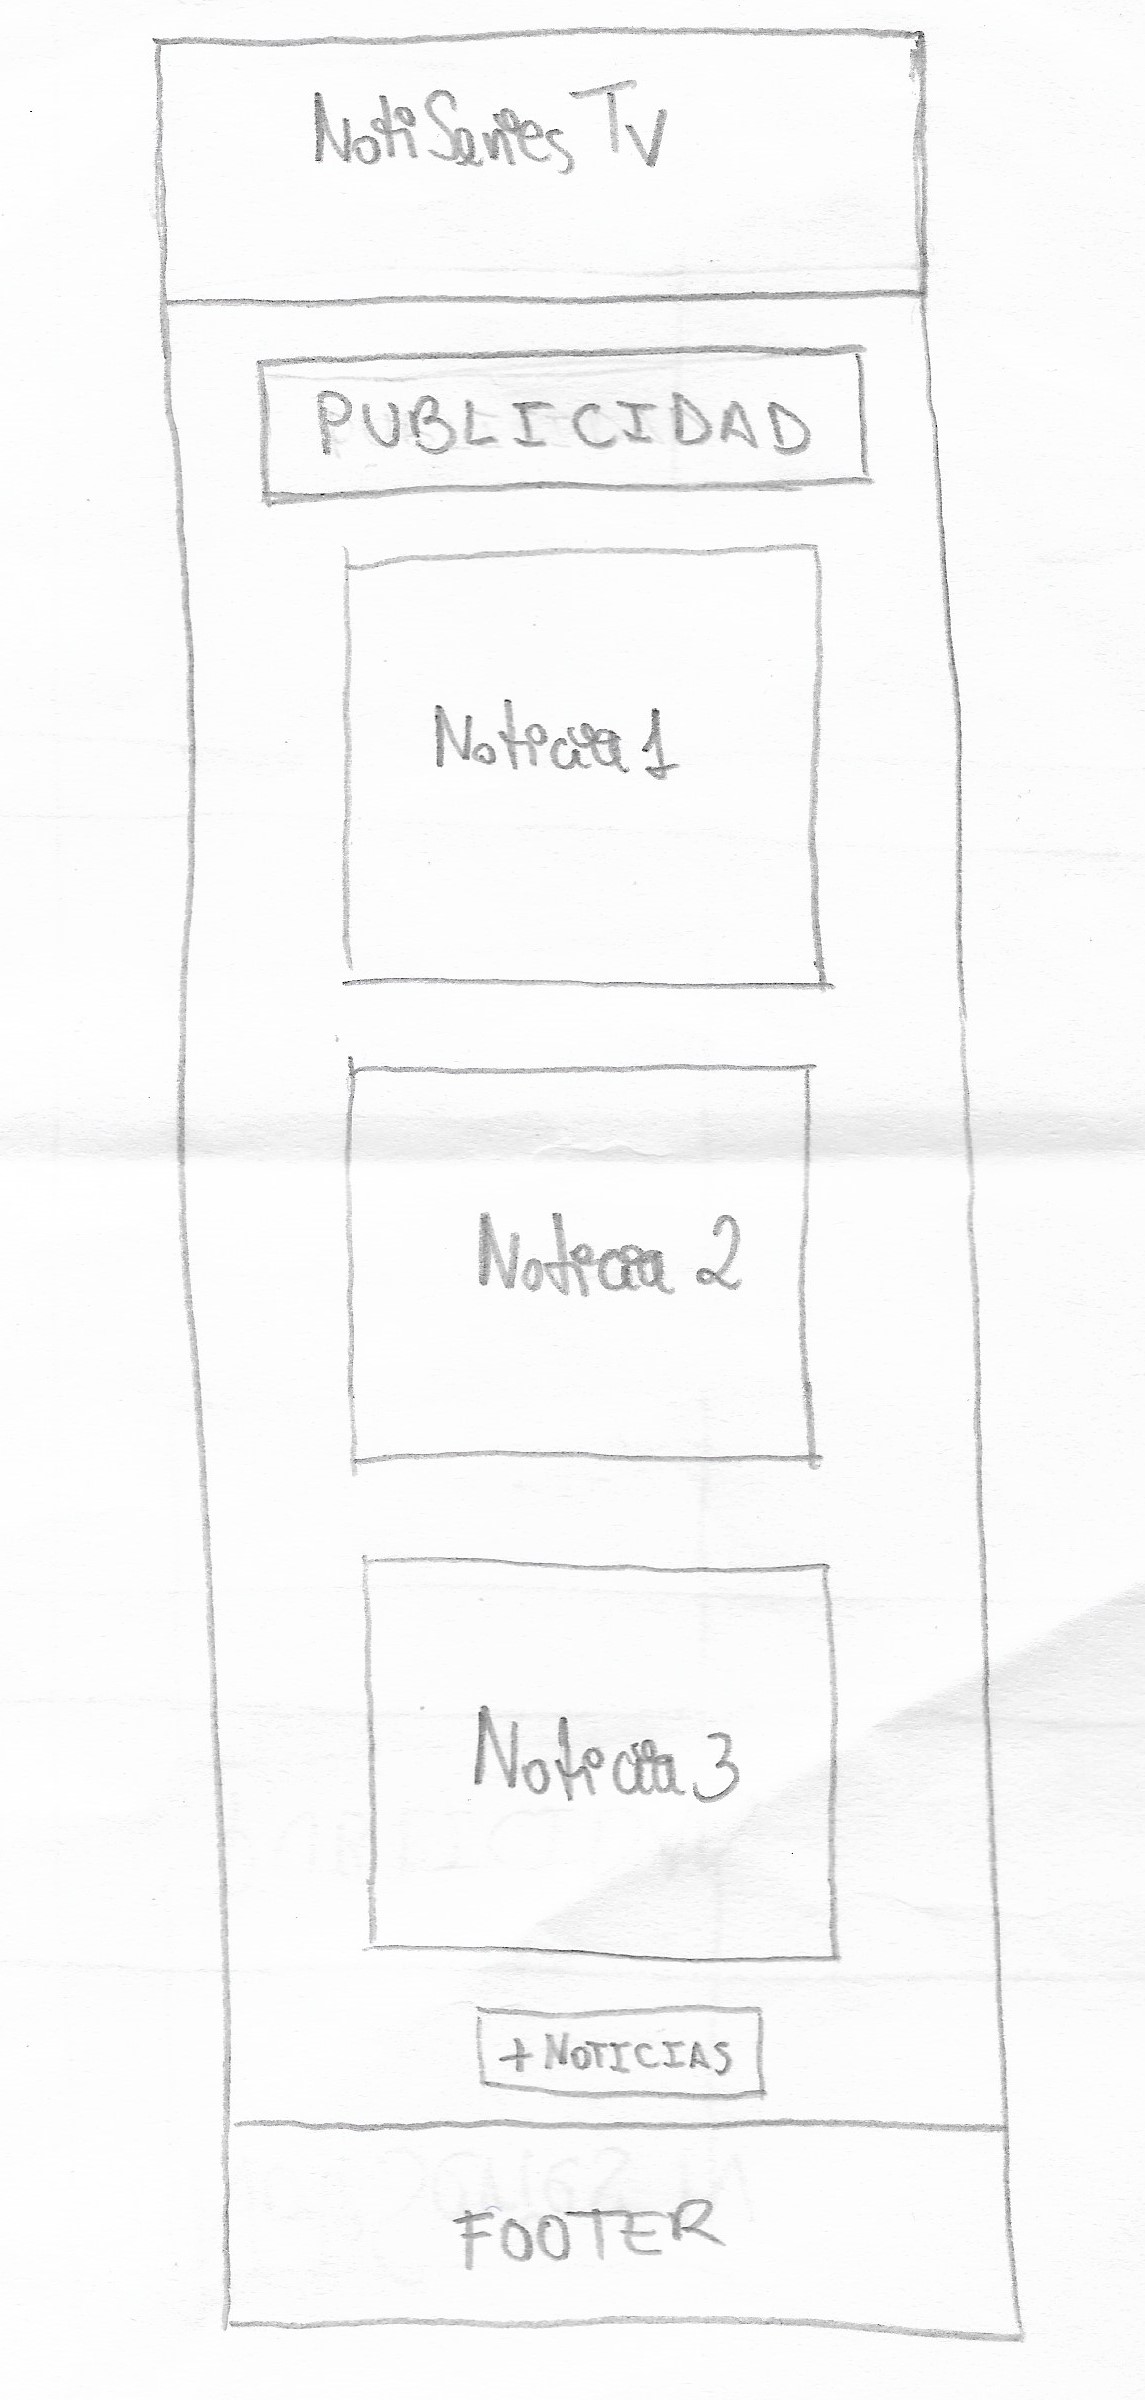 NotiSeries Tv
PUBLICIDAD
Noticia 1
Noticia 2
Noticia 3
+ NOTICIAS
FOOTER